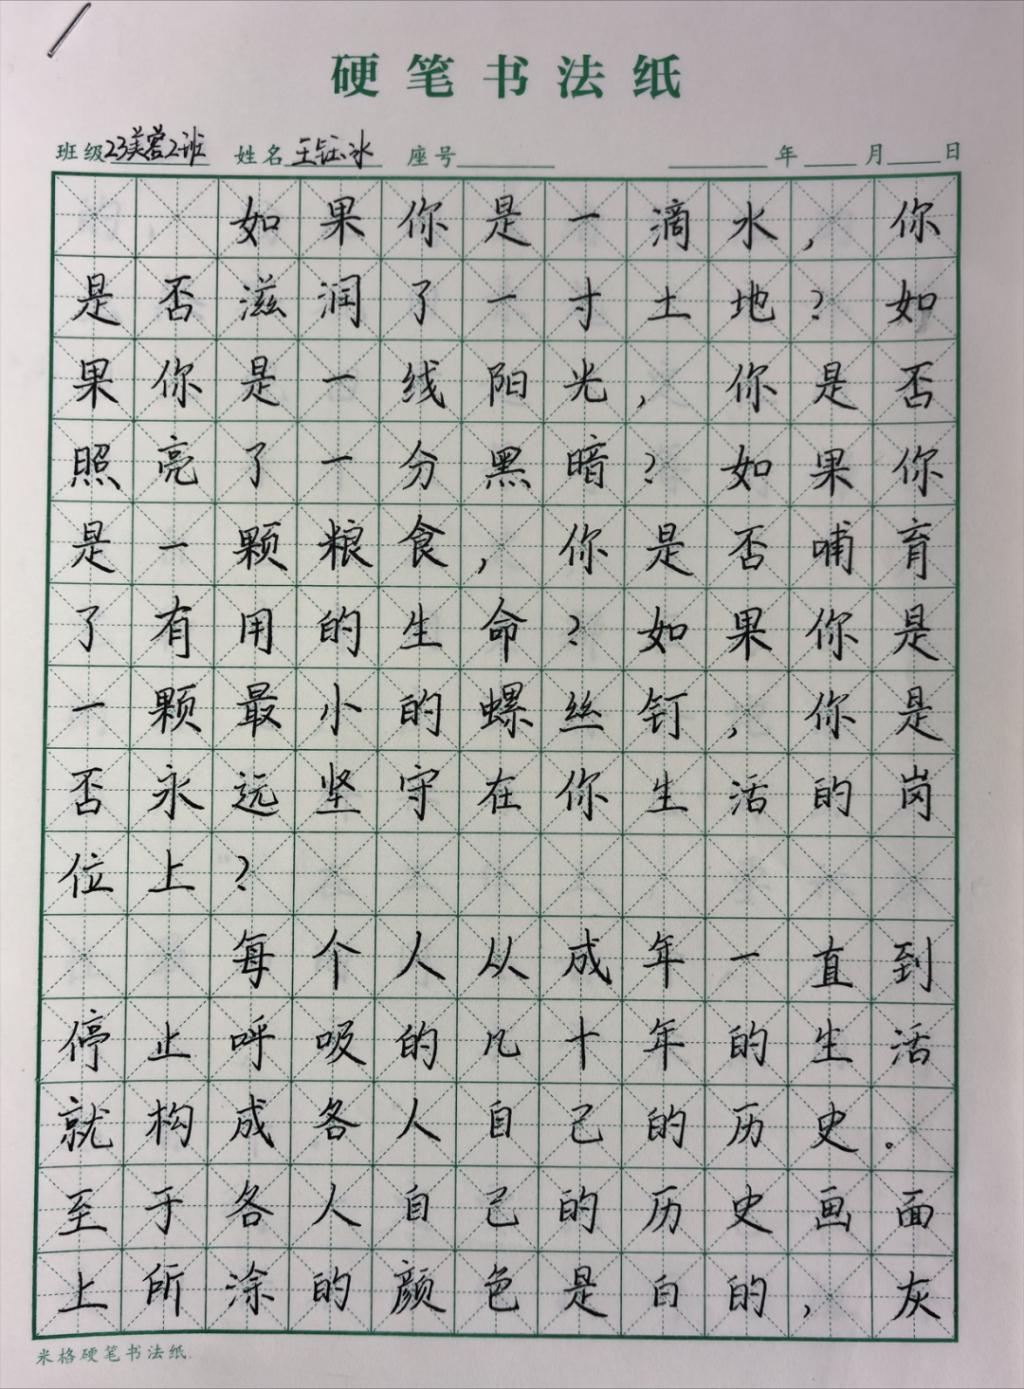 硬笔书法纸
班级23美容2班 姓名王钰冰 座号 年 月 日
如果你是一滴水，你
是否滋润了一寸土地？如
果你是一线阳光，你是否
照亮了一分黑暗？如果你
是一颗粮食，你是否哺育
了有用的生命？如果你是
一颗最小的螺丝钉，你是
否永远坚守在你生活的岗
位上？
每个人从成年一直到
停止呼吸的几十年的生活
就构成各人自己的历史。
至于各人自己的历史画面
上所涂的颜色是白的，灰
米格硬笔书法纸.